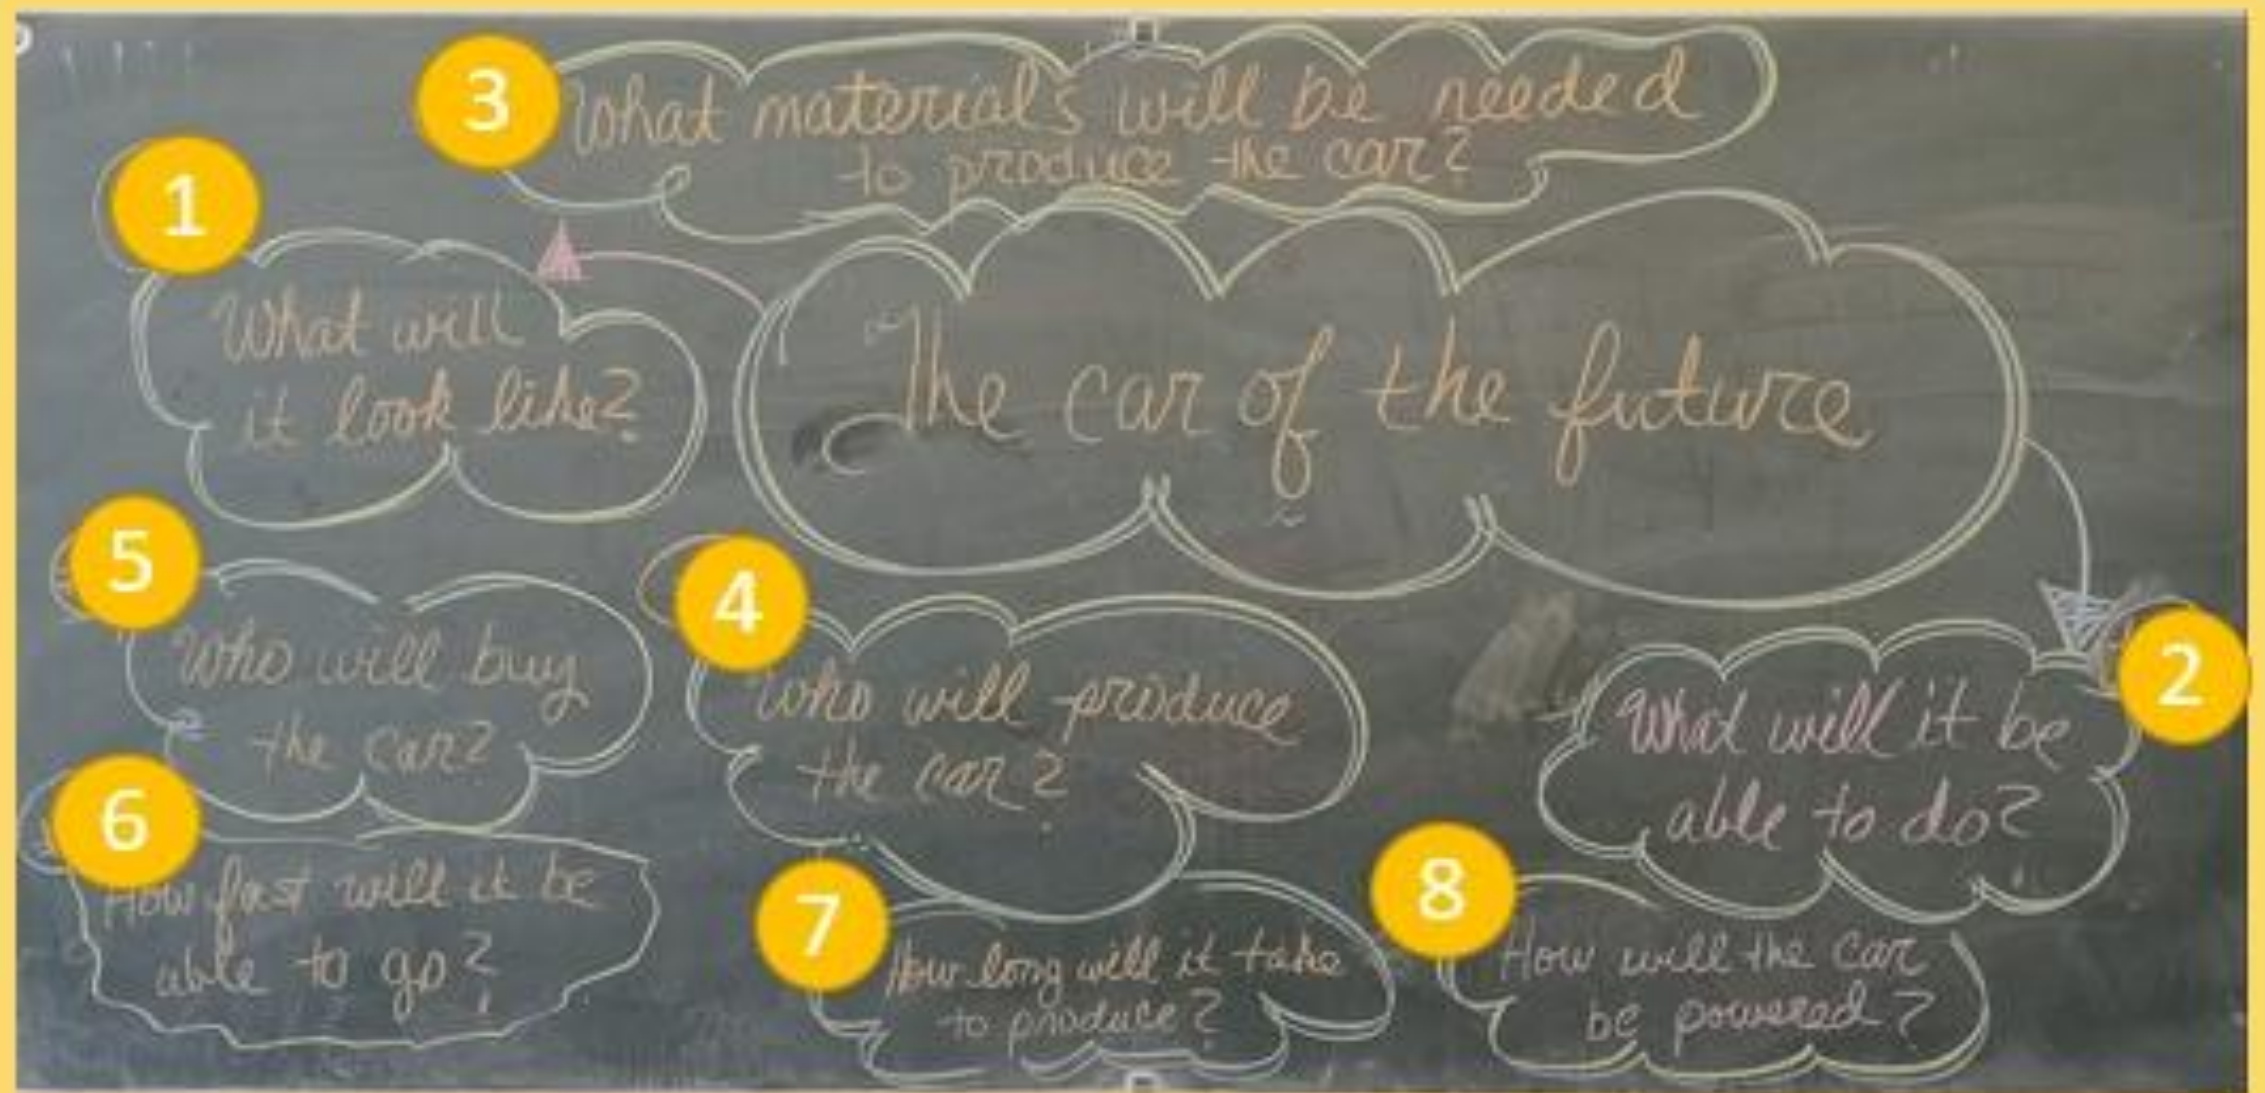 3
What materials will be needed
to produce the car?
1
What will
it look like?
The car of the future
5
Who will buy
the car?
4
Who will produce
the car?
2
What will it be
able to do?
6
How fast will it be
able to go?
7
How long will it take
to produce?
8
How will the car
be powered?